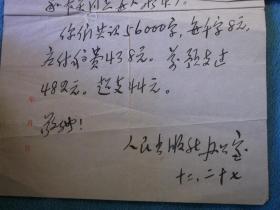 你们共计56000字，每千字8元，
应付稿费438元。前预支过
482元。超支44元。
敬礼！
人民出版社办公室
十二、二十七